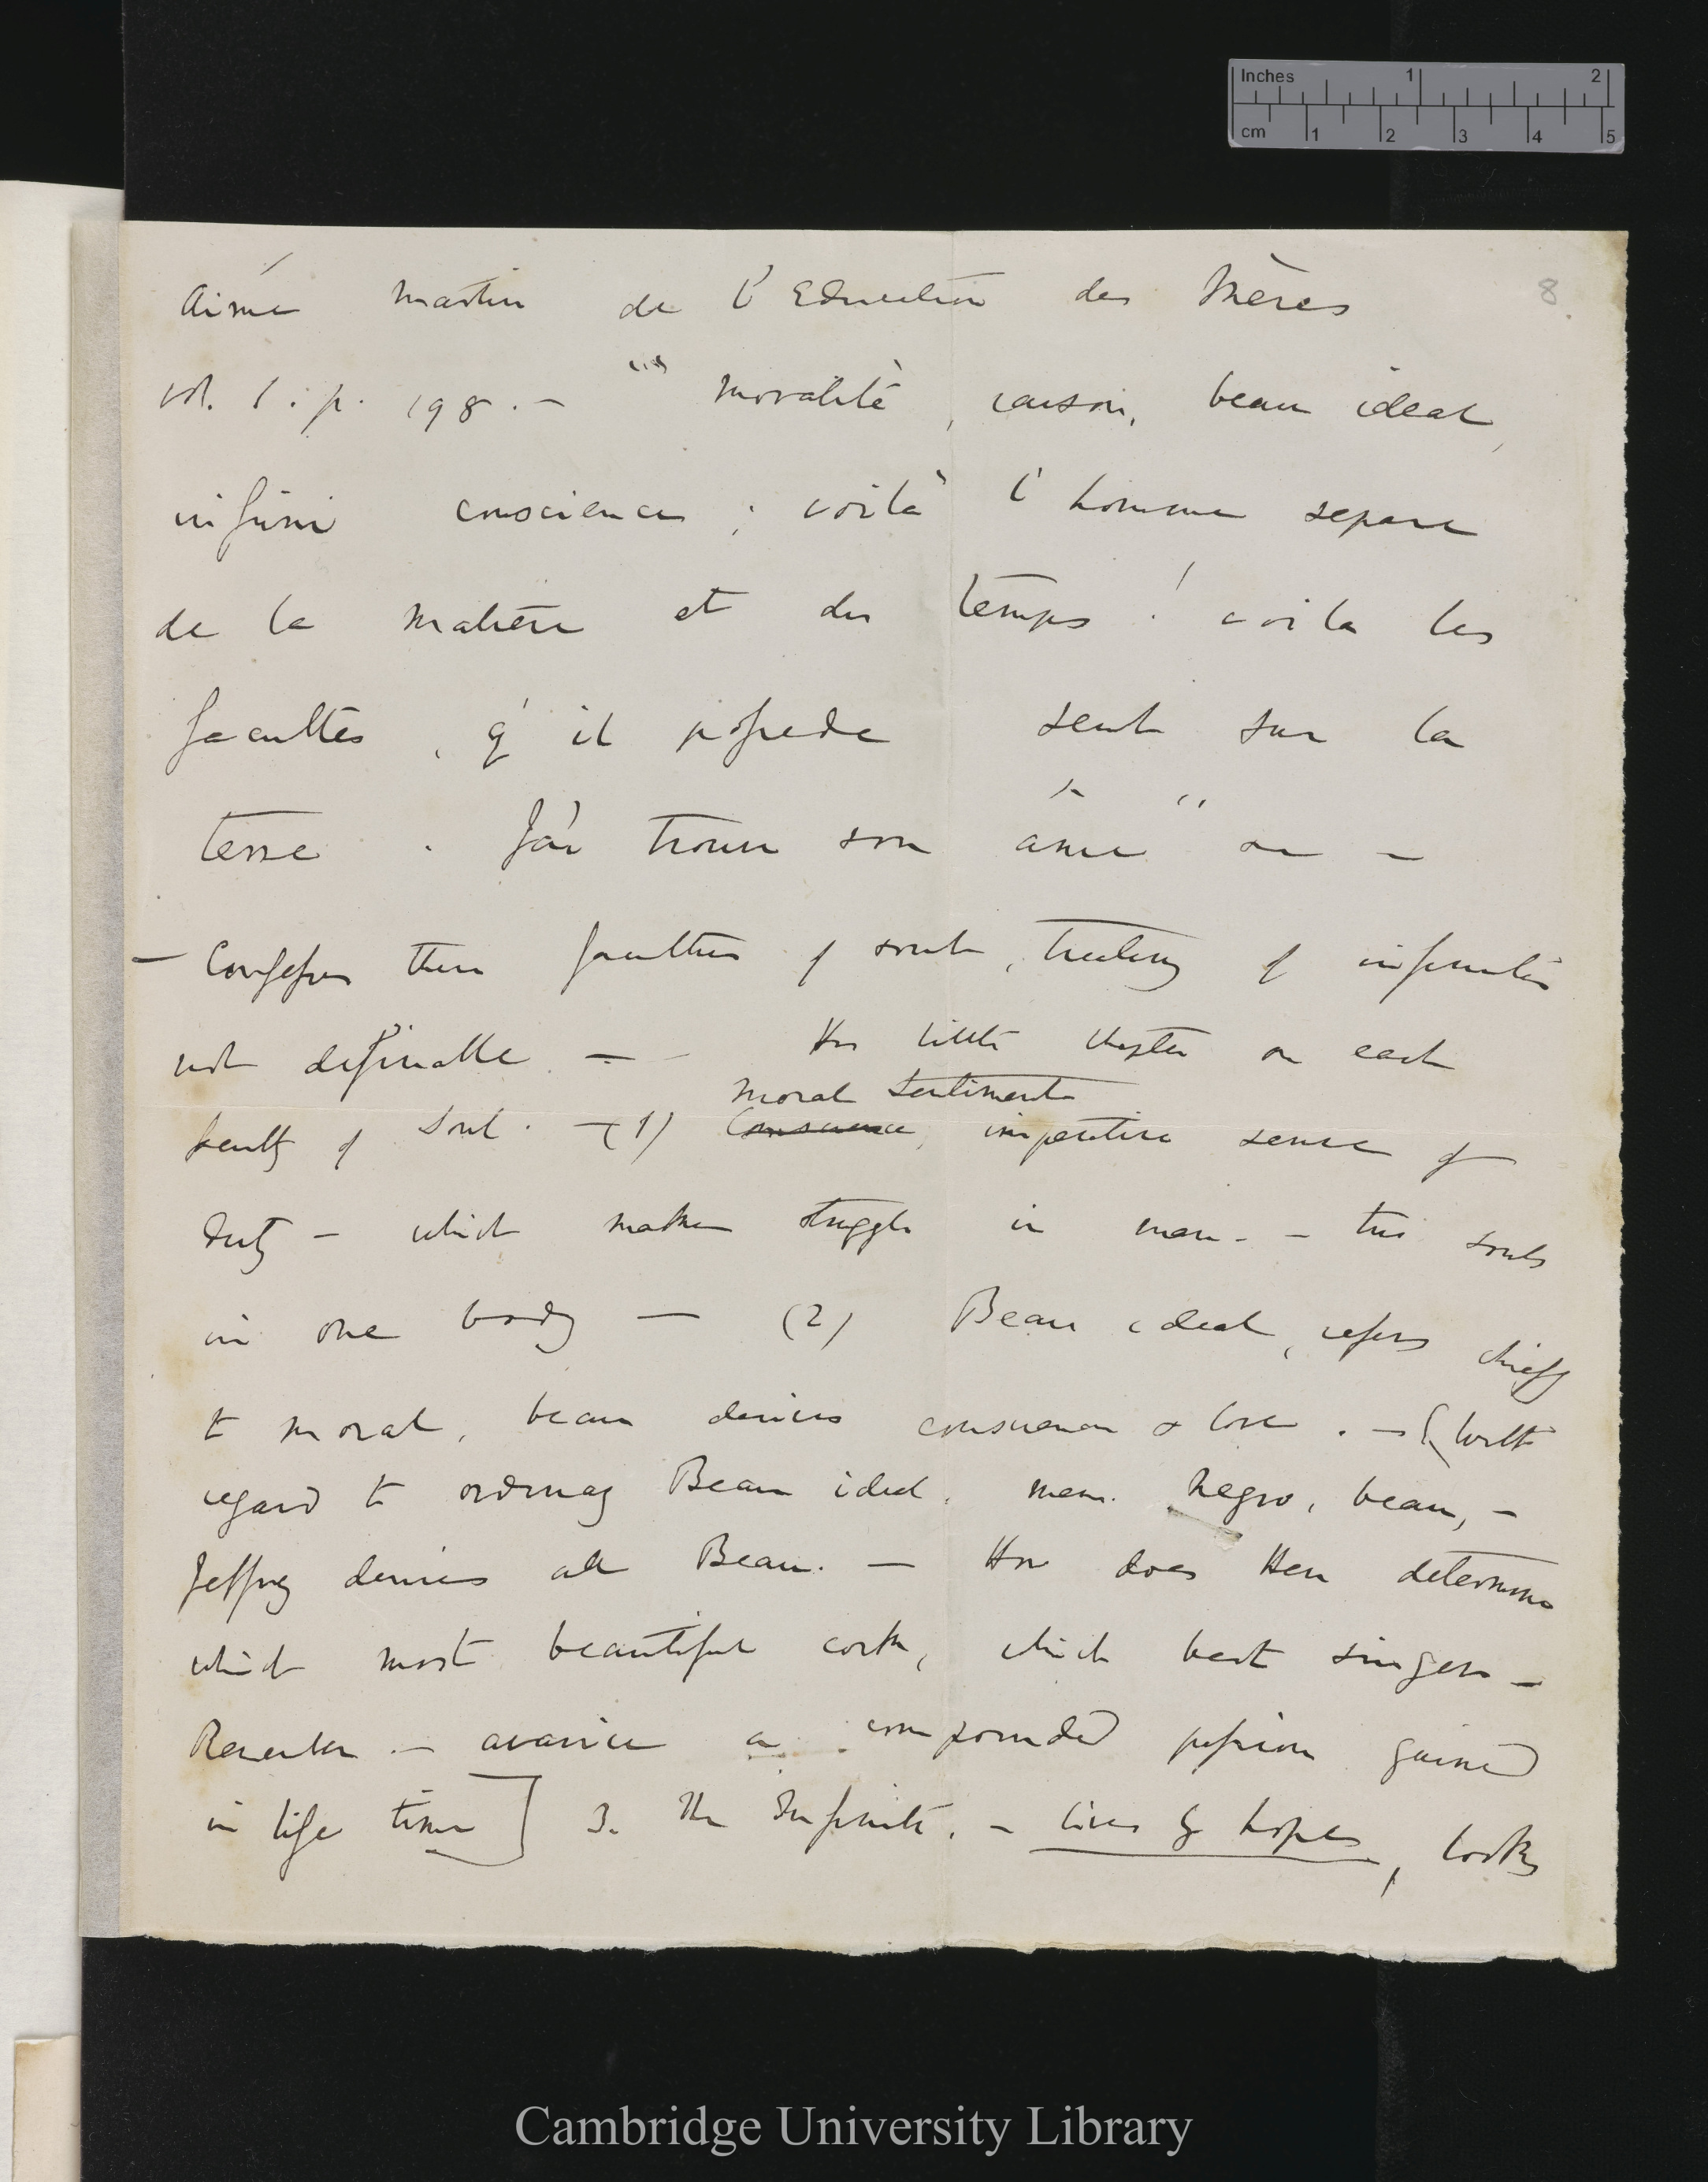 Inches 1 2
cm 1 2 3 4 5
8
Aimé Martin de l'Education des Mères
vol. 1. p. 198. — "moralité, raison, beau ideal,
infini conscience; voilà l'homme separe
de la matiere et du temps! voila les
facultes, q'il possede seul sur la
terre. J'ai trouve son âme" &c —
— Confesses these faculties of soul, treating of infinities
not definable. — Has little chapter on each
Moral Sentiment
faculty of Soul. — (1) Conscience, imperative sense of
duty — which makes struggle in man. — two souls
in one body — (2) Beau ideal, refers chiefly
to moral, beau derives conscience & love. — [(With
regard to ordinary Beau ideal. mem. Negro, beau, —
Jeffrey denies all Beau. — How does Hen determine
which most beautiful cock, which best singer —
Remember. — avarice a compounded passion gained
in life time] 3. The Infinite. — lives by hopes, looks
Cambridge University Library